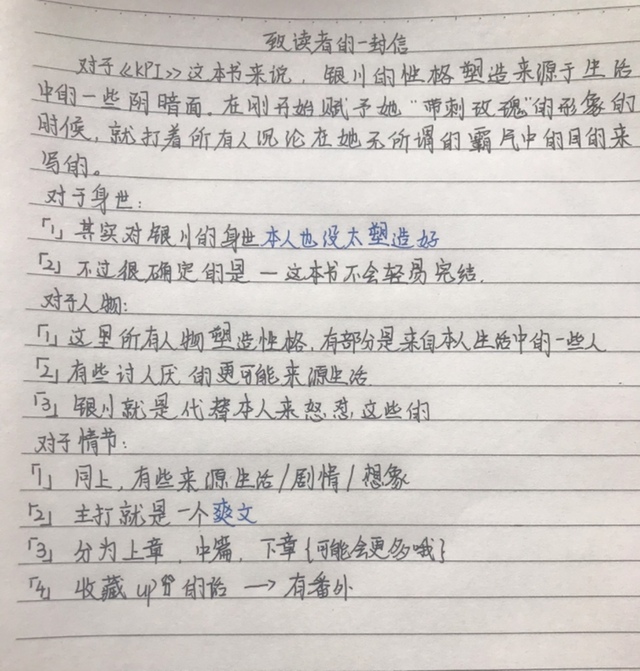 致读者的一封信
对于《KPI》这本书来说，银川的性格塑造来源于生活
中的一些阴暗面。在刚开始赋予她“带刺玫瑰”的形象的
时候，就打着所有人沉沦在她无所谓的霸气中的目的来
写的。
对于身世：
「1」其实对银川的身世本人也没太塑造好
「2」不过很确定的是一这本书不会轻易完结.
对于人物：
「1」这里所有人物塑造性格，有部分是来自本人生活中的一些人
「2」有些讨人厌的更可能来源生活
「3」银川就是代替本人来怒怼这些的
对于情节：
「1」同上，有些来源生活/剧情/想象
「2」主打就是一个爽文
「3」分为上章，中篇，下章{可能会更多哦}
「4」收藏up的话→有番外